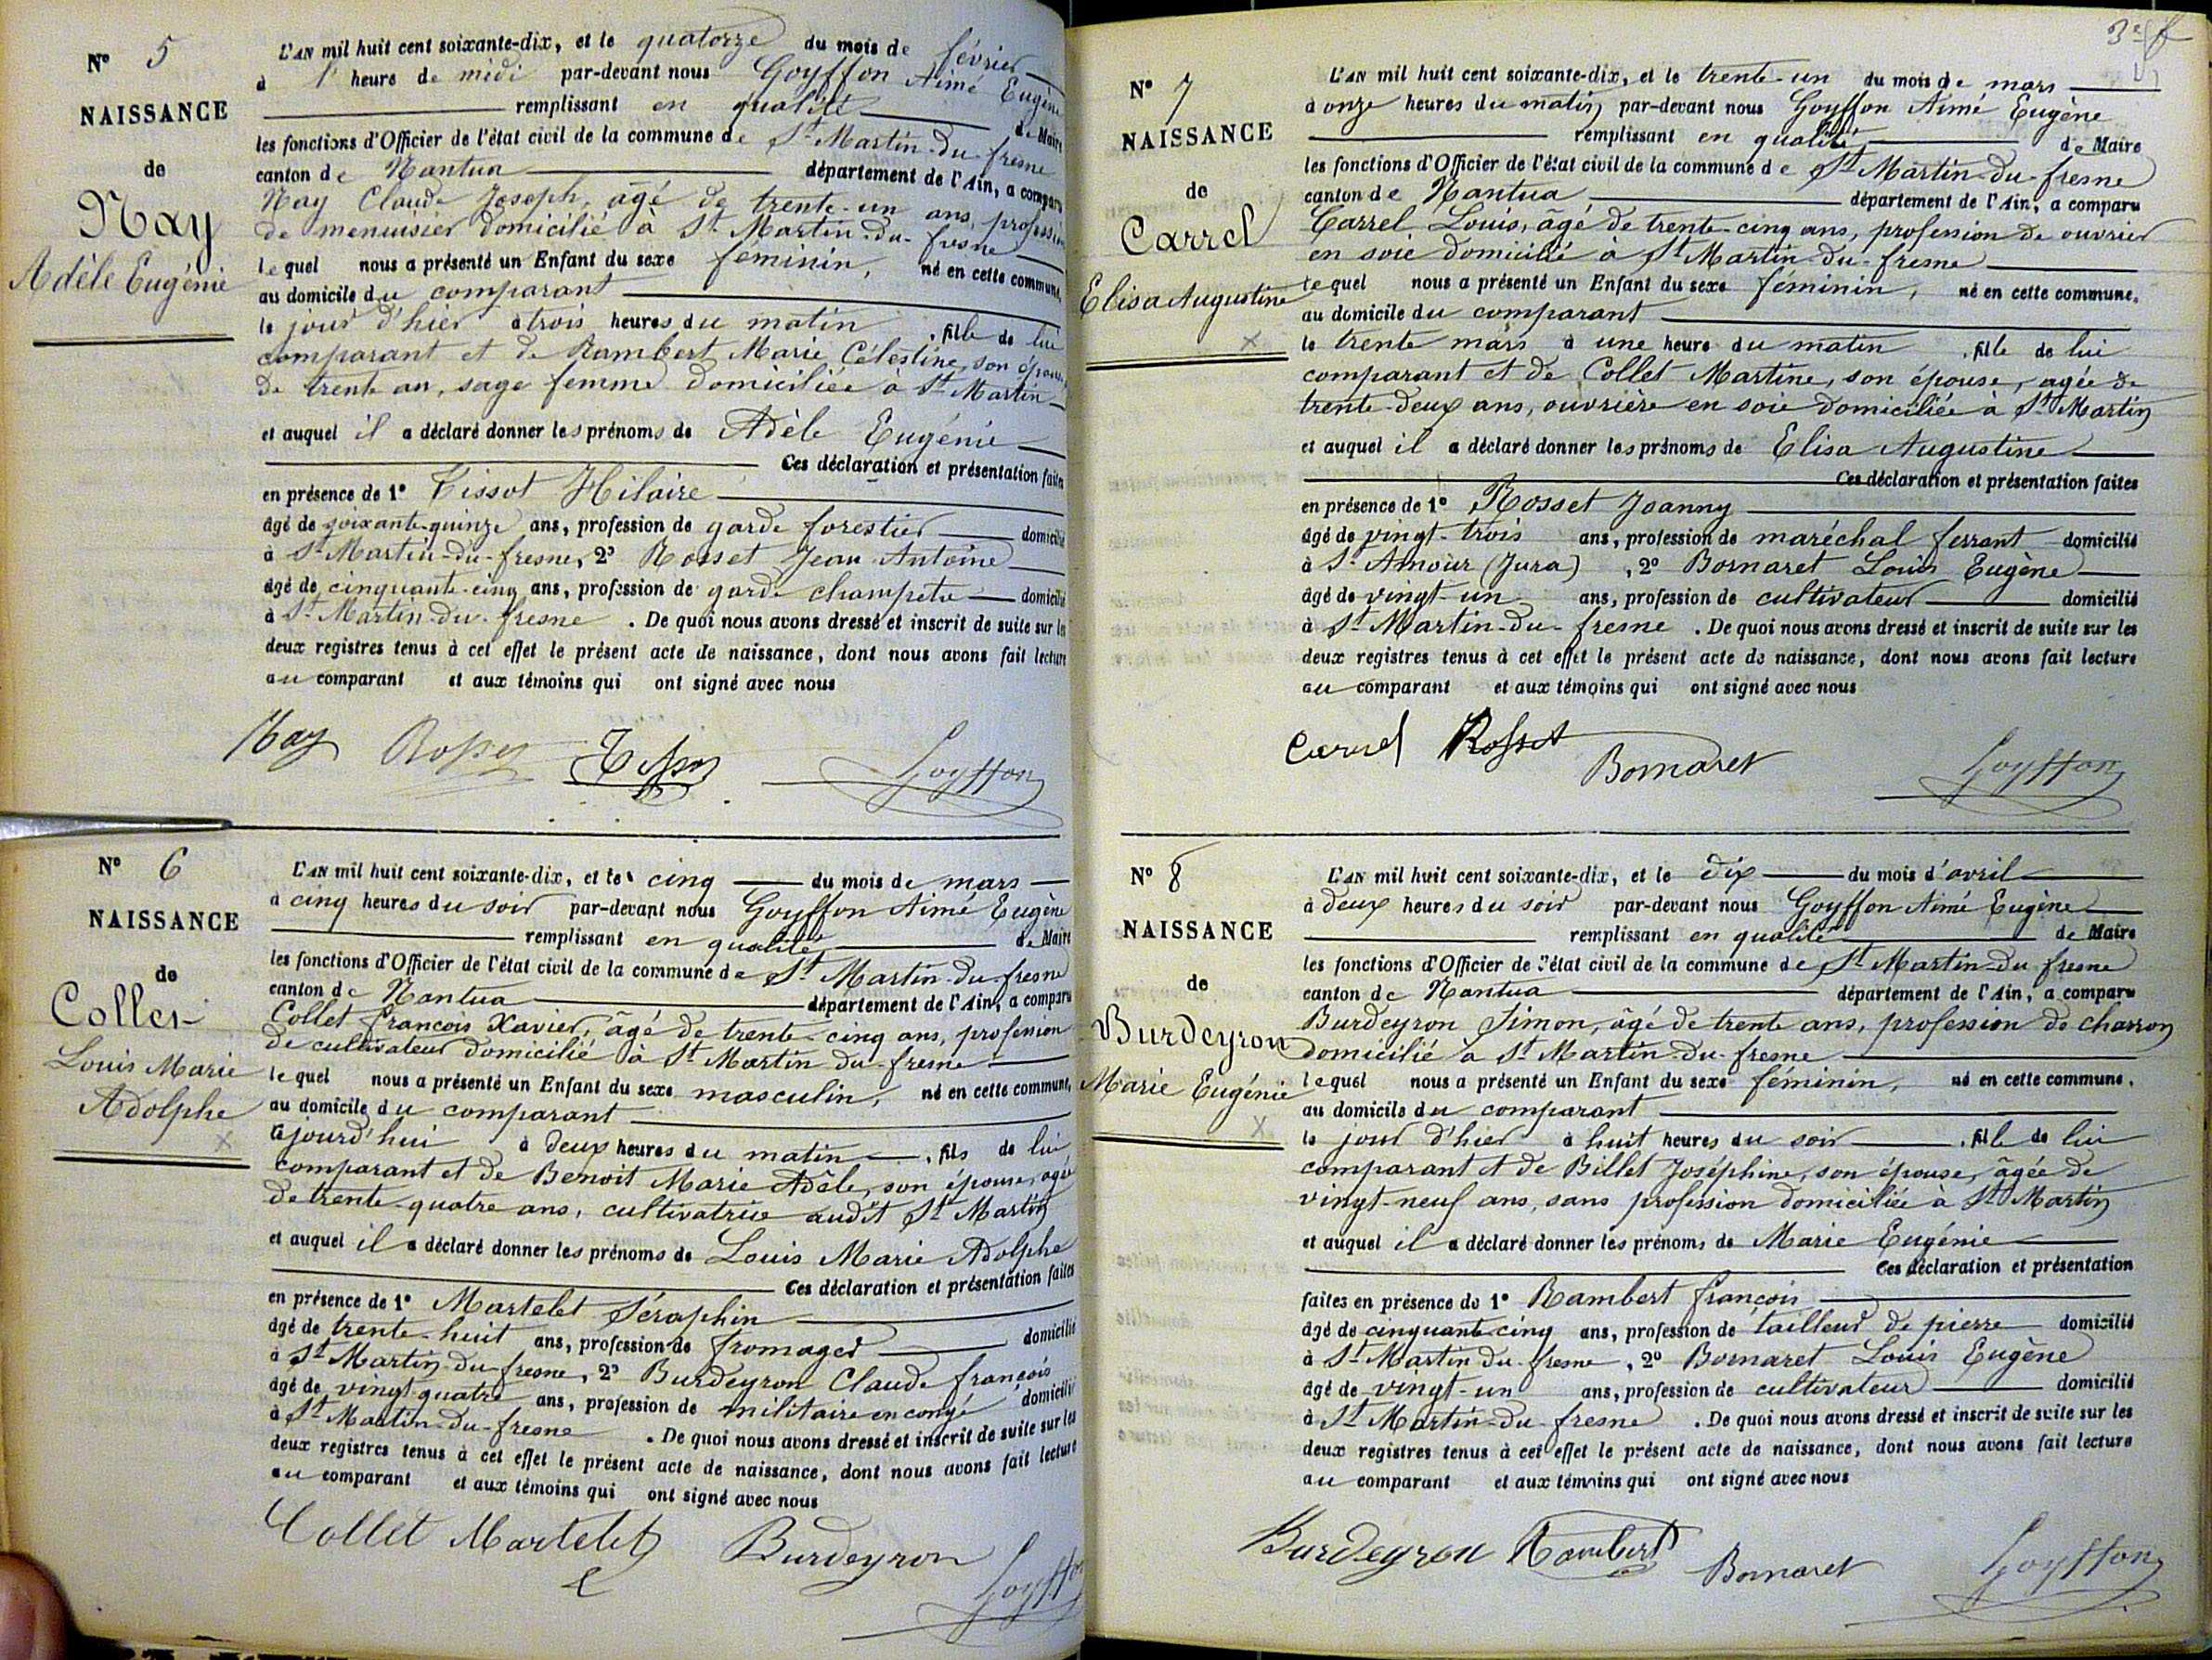 N° 5
NAISSANCE
de
Nay
Adèle Eugénie
L'AN mil huit cent soixante-dix, et le quatorze du mois de février
à 1 heure de midi par-devant nous Goyffon Aimé Eugène
remplissant en qualité de Maire
les fonctions d'Officier de l'état civil de la commune de St Martin-du-fresne
canton de Nantua département de l'Ain, a comparu
Nay Claude Joseph, âgé de trente-un ans, profession
de menuisier domicilié à St Martin-du-fresne
lequel nous a présenté un Enfant du sexe féminin, né en cette commune,
au domicile du comparant
le jour d'hier à trois heures du matin, fille de lui
comparant et de Rambert Marie Célestine, son épouse
de trente an, sage femme domiciliée à St Martin
et auquel il a déclaré donner les prénoms de Adèle Eugénie
Ces déclaration et présentation faites
en présence de 1° Tissot Hilaire
âgé de soixante-quinze ans, profession de garde forestier domicilié
à St Martin-du-fresne, 2° Rosset Jean Antoine
âgé de cinquante-cinq ans, profession de garde champetre domicilié
à St Martin-du-fresne. De quoi nous avons dressé et inscrit de suite sur les
deux registres tenus à cet effet le présent acte de naissance, dont nous avons fait lecture
au comparant et aux témoins qui ont signé avec nous
Nay Rosset Tissot Goyffon
N° 6
NAISSANCE
de
Collet
Louis Marie
Adolphe
x
L'AN mil huit cent soixante-dix, et le cinq du mois de mars
à cinq heures du soir par-devant nous Goyffon Aimé Eugène
remplissant en qualité de Maire
les fonctions d'Officier de l'état civil de la commune de St Martin-du-fresne
canton de Nantua département de l'Ain, a comparu
Collet françois Xavier, âgé de trente-cinq ans, profession
de cultivateur domicilié à St Martin-du-fresne
lequel nous a présenté un Enfant du sexe masculin, né en cette commune,
au domicile du comparant
ajourd'hui à deux heures du matin, fils de lui
comparant et de Benoit Marie Adèle, son épouse, agée
de trente-quatre ans, cultivatrice audit St Martin
et auquel il a déclaré donner les prénoms de Louis Marie Adolphe
Ces déclaration et présentation faites
en présence de 1° Martelet Séraphin
âgé de trente-huit ans, profession de fromager domicilié
à St Martin-du-fresne, 2° Burdeyron Claude françois
âgé de vingt-quatre ans, profession de militaire en congé domicilié
à St Martin-du-fresne. De quoi nous avons dressé et inscrit de suite sur les
deux registres tenus à cet effet le présent acte de naissance, dont nous avons fait lecture
au comparant et aux témoins qui ont signé avec nous
Collet Martelet Burdeyron Goyffon
N° 7
NAISSANCE
de
Carrel
Elisa Augustine
x
L'AN mil huit cent soixante-dix, et le trente-un du mois de mars
à onze heures du matin par-devant nous Goyffon Aimé Eugène
remplissant en qualité de Maire
les fonctions d'Officier de l'état civil de la commune de St Martin-du-fresne
canton de Nantua département de l'Ain, a comparu
Carrel Louis, âgé de trente-cinq ans, profession de ouvrier
en soie domicilié à St Martin-du-fresne
lequel nous a présenté un Enfant du sexe féminin, né en cette commune,
au domicile du comparant
le trente mars à une heure du matin, fille de lui
comparant et de Collet Martine, son épouse, agée de
trente-deux ans, ouvrière en soie domiciliée à St Martin
et auquel il a déclaré donner les prénoms de Elisa Augustine
Ces déclaration et présentation faites
en présence de 1° Rosset Joanny
âgé de vingt-trois ans, profession de maréchal ferrant domicilié
à St Amour (Jura), 2° Bornaret Louis Eugène
âgé de vingt-un ans, profession de cultivateur domicilié
à St Martin-du-fresne. De quoi nous avons dressé et inscrit de suite sur les
deux registres tenus à cet effet le présent acte de naissance, dont nous avons fait lecture
au comparant et aux témoins qui ont signé avec nous
Carrel Rosset Bornaret Goyffon
N° 8
NAISSANCE
de
Burdeyron
Marie Eugénie
x
L'AN mil huit cent soixante-dix, et le dix du mois d'avril
à deux heures du soir par-devant nous Goyffon Aimé Eugène
remplissant en qualité de Maire
les fonctions d'Officier de l'état civil de la commune de St Martin-du-fresne
canton de Nantua département de l'Ain, a comparu
Burdeyron Simon, âgé de trente ans, profession de charron
domicilié à St Martin-du-fresne
lequel nous a présenté un Enfant du sexe féminin, né en cette commune,
au domicile du comparant
le jour d'hier à huit heures du soir, fille de lui
comparant et de Billet Joséphine, son épouse, âgée de
vingt-neuf ans, sans profession domiciliée à St Martin
et auquel il a déclaré donner les prénoms de Marie Eugénie
Ces déclaration et présentation
faites en présence de 1° Rambert françois
âgé de cinquante cinq ans, profession de tailleur de pierre domicilié
à St Martin-du-fresne, 2° Bornaret Louis Eugène
âgé de vingt-un ans, profession de cultivateur domicilié
à St Martin-du-fresne. De quoi nous avons dressé et inscrit de suite sur les
deux registres tenus à cet effet le présent acte de naissance, dont nous avons fait lecture
au comparant et aux témoins qui ont signé avec nous
Burdeyron Rambert Bornaret Goyffon